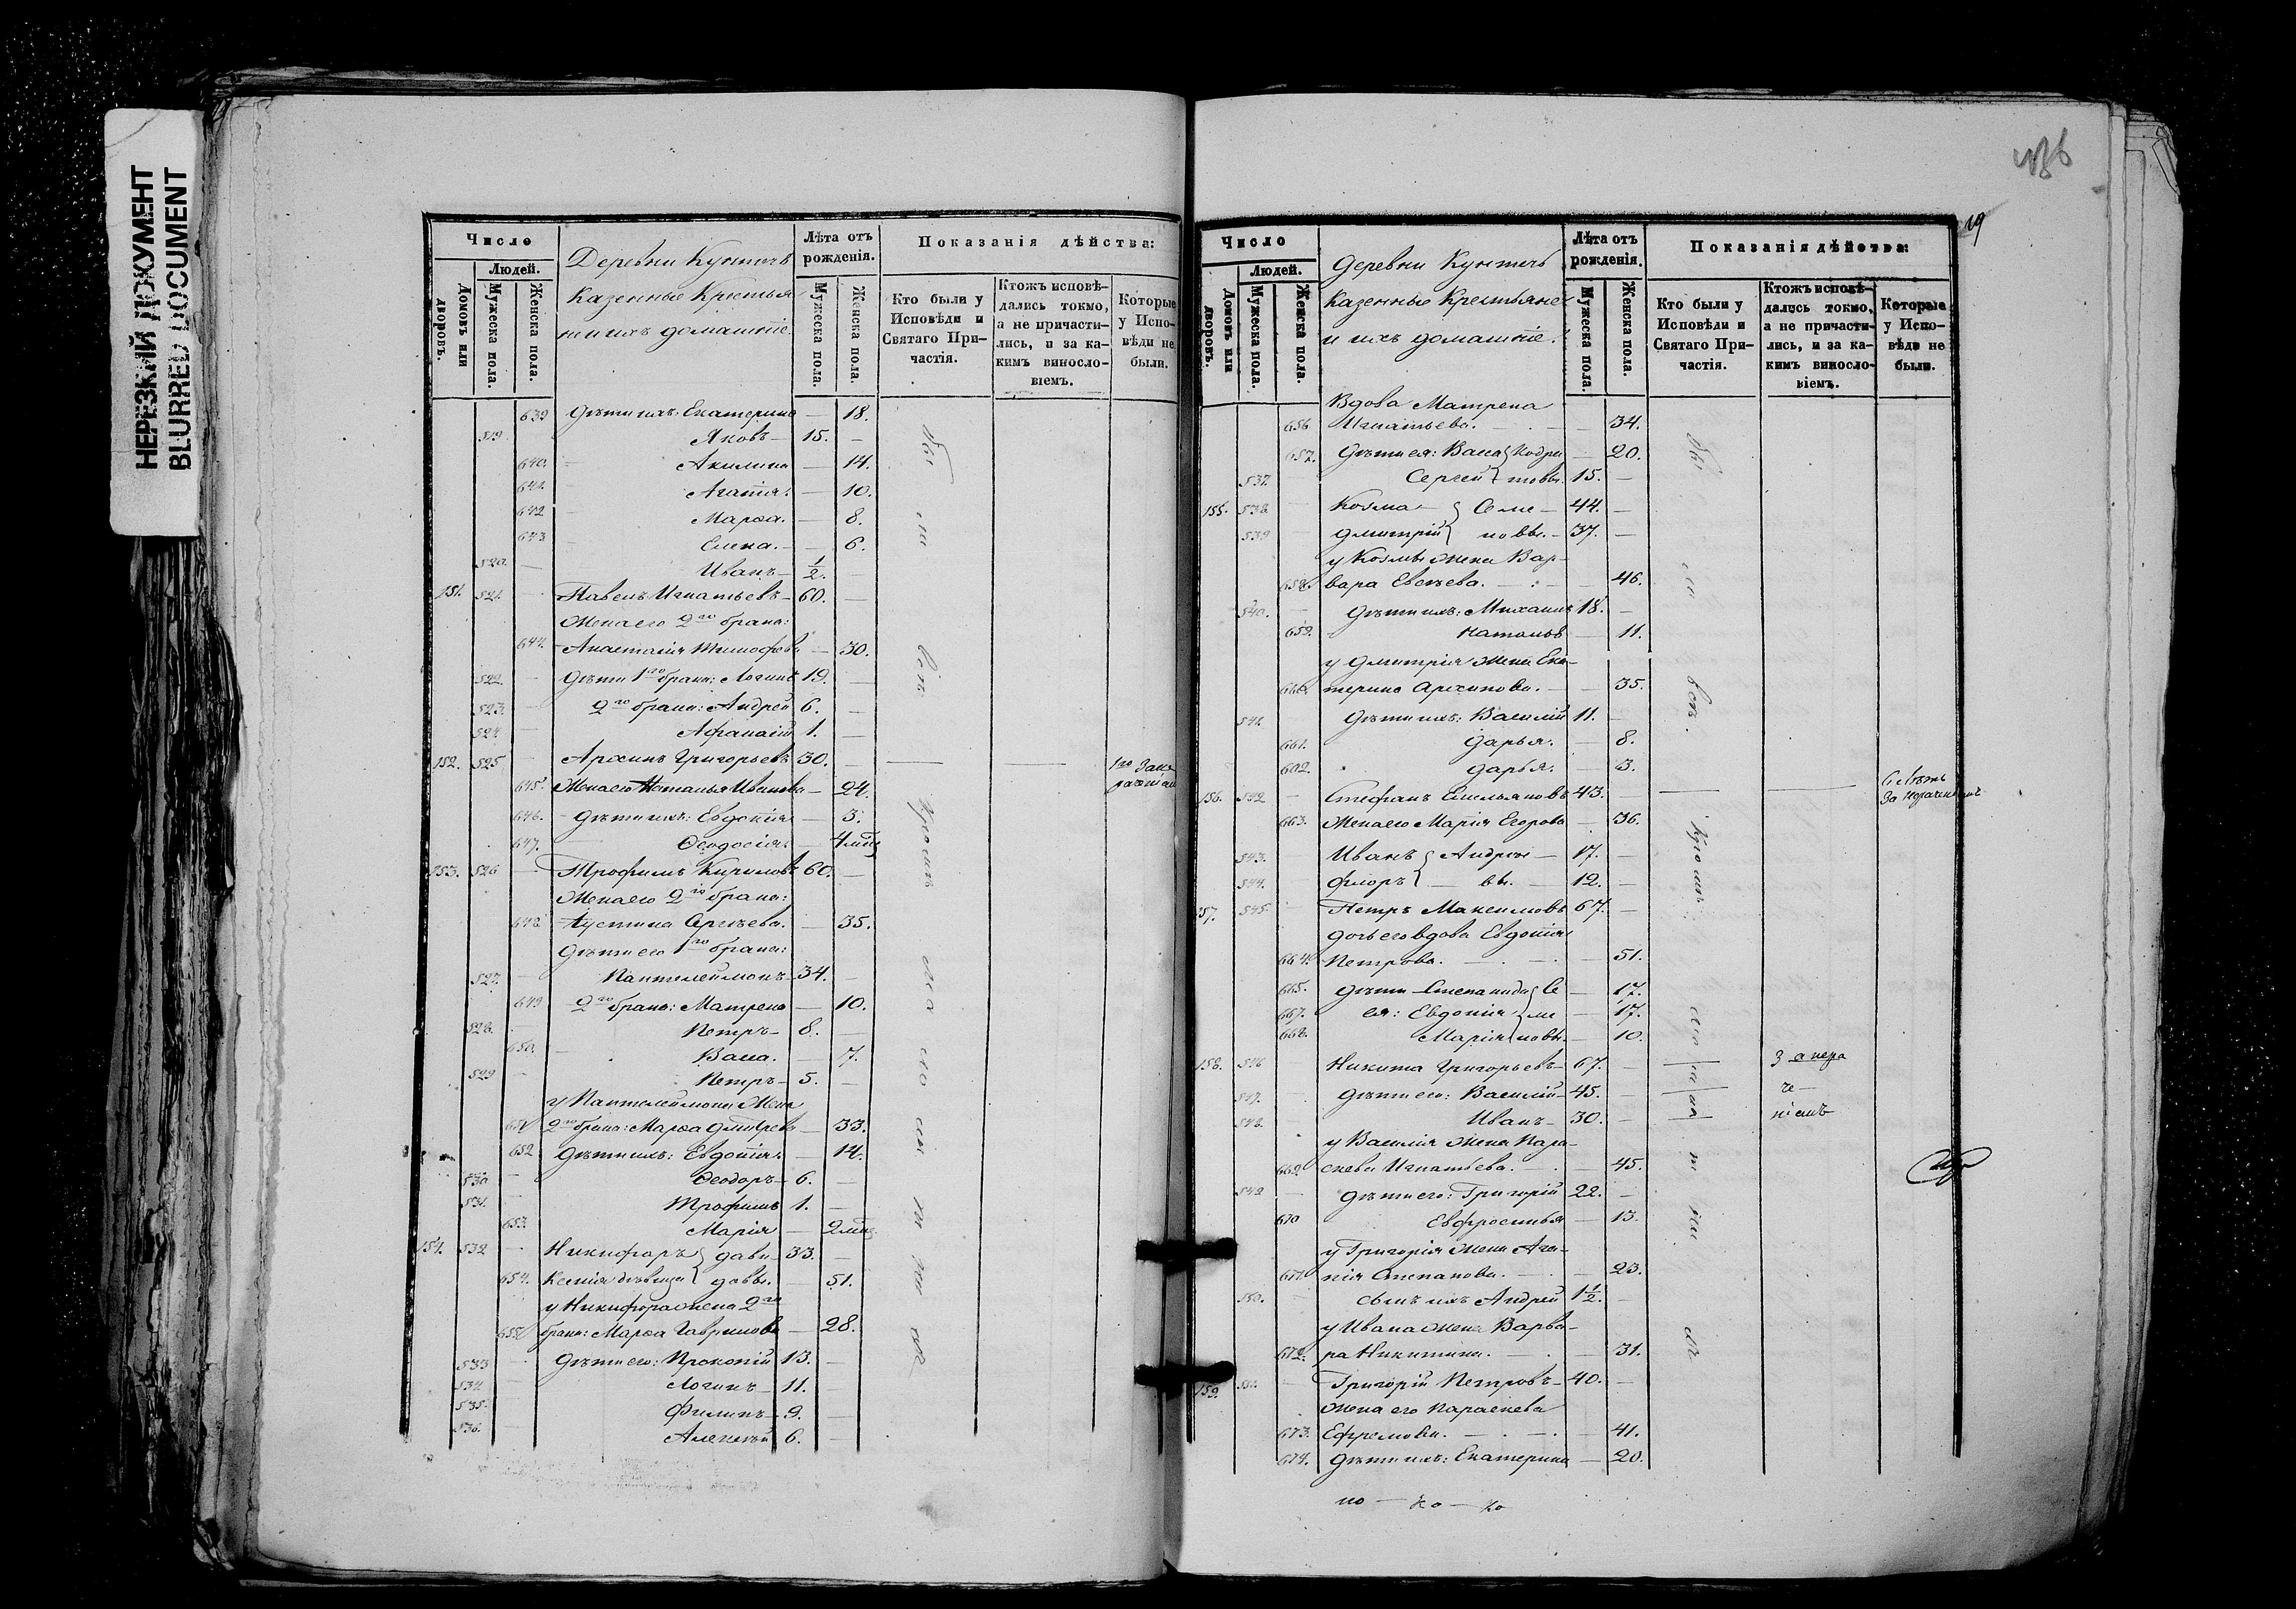 НЕРЕЗКИЙ ДОКУМЕНТ
BLURRED DOCUMENT
Число
Людей.
Домовъ или дворовъ.
Мужеска пола.
Женска пола.
Деревни
Казенные Крестья
и ихъ домашніе.
Лѣта отъ рожденія.
Мужеска пола.
Женска пола.
Показанія дѣйства:
Кто были у Исповѣди и Святаго Причастія.
Ктожъ исповѣдались токмо, а не причастились, и за какимъ винословіемъ.
Которые у Исповѣди не были.
639 Дѣти ихъ: Екатерина — 18.
519. Яковъ — 15. —
640. Акилина — 14.
641. Агапія. — 10.
642 Марѳа. — 8.
643 Елена. — 6.
520. — Иванъ — 1/2. —
151. 521. — Павелъ Игнатьевъ — 60. —
Жена его 2го брака:
644. Анастасія Тимофеева — 30.
522. — Дѣти 1го брака: Логинъ 19. —
523. — 2го брака: Андрей 6. —
524. — Афанасій 1. —
152. 525 — Архипъ Григорьевъ 30. —
645. Жена его Наталья Иванова — 24.
646. Дѣти ихъ: Евдокія — 3.
647. Ѳеодосія — 4
153. 526 — Трофимъ Кириловъ 60. —
Жена его 2го брака:
648. Іустина — 35.
Дѣти его 1го брака:
527. — Пантелеймонъ — 34. —
649 2го брака: Матрена — 10.
528. — Петръ — 8. —
650. Васса. — 7.
529 — Петръ — 5. —
у Пантелеймона Жена
651 2го брака: Марѳа — 33.
652 Дѣти ихъ: Евдокія. — 14.
530. — Ѳеодоръ — 6. —
531. — Трофимъ 1. —
653. Марія — 2
154. 532 — Никифоръ Дави — 33. —
654. Ксенія дѣвица довы. — 51.
у Никифора жена 2го
655. брака: Марѳа Гаврилова — 28.
533 — Дѣти его: Прокопій 13. —
534. — Логинъ — 11. —
535. — Филипъ — 9. —
536. — Алексѣй 6. —
436
19
Число
Людей.
Домовъ или дворовъ.
Мужеска пола.
Женска пола.
Деревни
Казенные Крестьяне
и ихъ домашніе.
Лѣта отъ рожденія.
Мужеска пола.
Женска пола.
Показанія дѣйства:
Кто были у Исповѣди и Святаго Причастія.
Ктожъ исповѣдались токмо, а не причастились, и за какимъ винословіемъ.
Которые у Исповѣди не были.
Вдова Матрена
656 Игнатьева. — 34.
657. Дѣти ея: Васса — 20.
537. Сергей 15. —
155. 538. Козма Семе — 44. —
539 Дмитрій новы. — 37. —
у Козмы жена Вар-
658. вара — 46.
540. — Дѣти ихъ: Михаилъ 18. —
659. Наталья — 11.
у Дмитрія жена Ека-
660. терина Архипова. — 35.
541. Дѣти ихъ: Василій 11. —
661. Дарья. — 8.
662. Дарья. — 3.
156. 542 — Стефанъ Емельяновъ 43. —
663. Жена его Марія Егорова — 36.
543. — Иванъ Андрее — 17. —
544. — Флоръ вы. — 12. —
157. 545. — Петръ Максимовъ 67. —
дочь его вдова Евдокія
664. Петрова. — 51.
665. Дѣти Степанида Се — 17.
667. ея: Евдокія ме — 17.
668. Марія новы — 10.
158. 546 — Никита Григорьевъ — 67. —
547. — Дѣти его: Василій — 45. —
548. — Иванъ — 30. —
у Василія жена Пара-
669 скева Игнатьева. — 45.
549 — Дѣти его: Григорій 22. —
670 Евфросинья — 13.
у Григорія жена Ага-
671. пія Степанова. — 23.
550. — сынъ ихъ Андрей 1 1/2. —
у Ивана жена Варва-
672. ра Никитина. — 31.
159. — Григорій Петровъ — 40. —
Жена его Параскева
673. Ефремова. — 41.
674. Дѣти ихъ: Екатерина — 20.